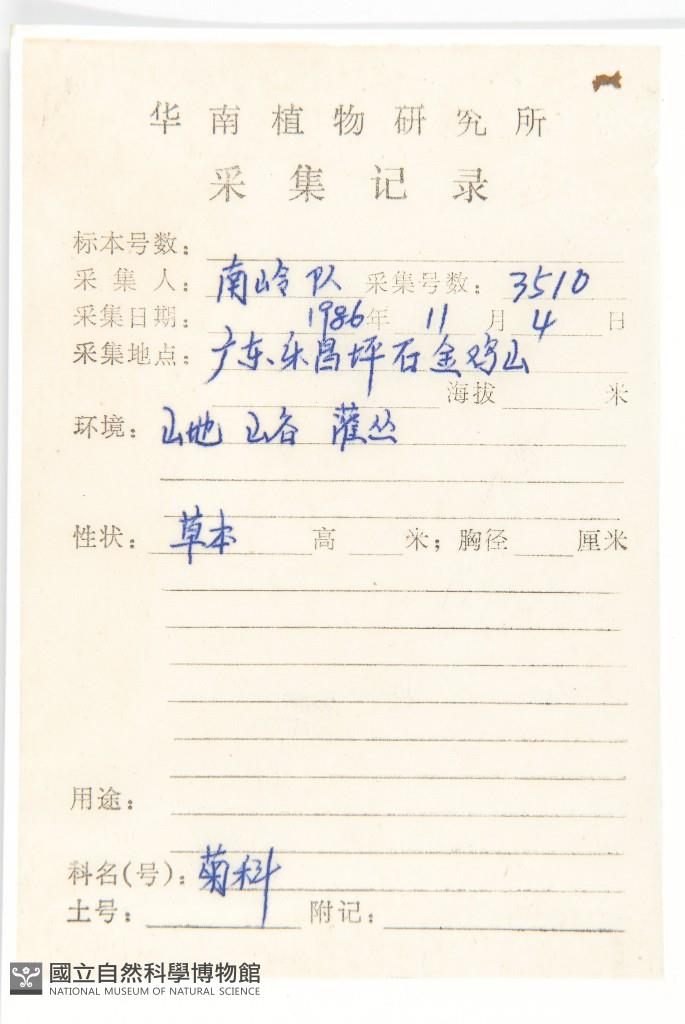 华南植物研究所
采集记录
标本号数：
采集人：南岭队 采集号数：3510
采集日期：1986年11月4日
采集地点：广东乐昌坪石金鸡山
海拔 米
环境：山地 山谷 灌丛
性状：草本 高 米；胸径 厘米
用途：
科名(号)：菊科
土号： 附记：
國立自然科學博物館
NATIONAL MUSEUM OF NATURAL SCIENCE